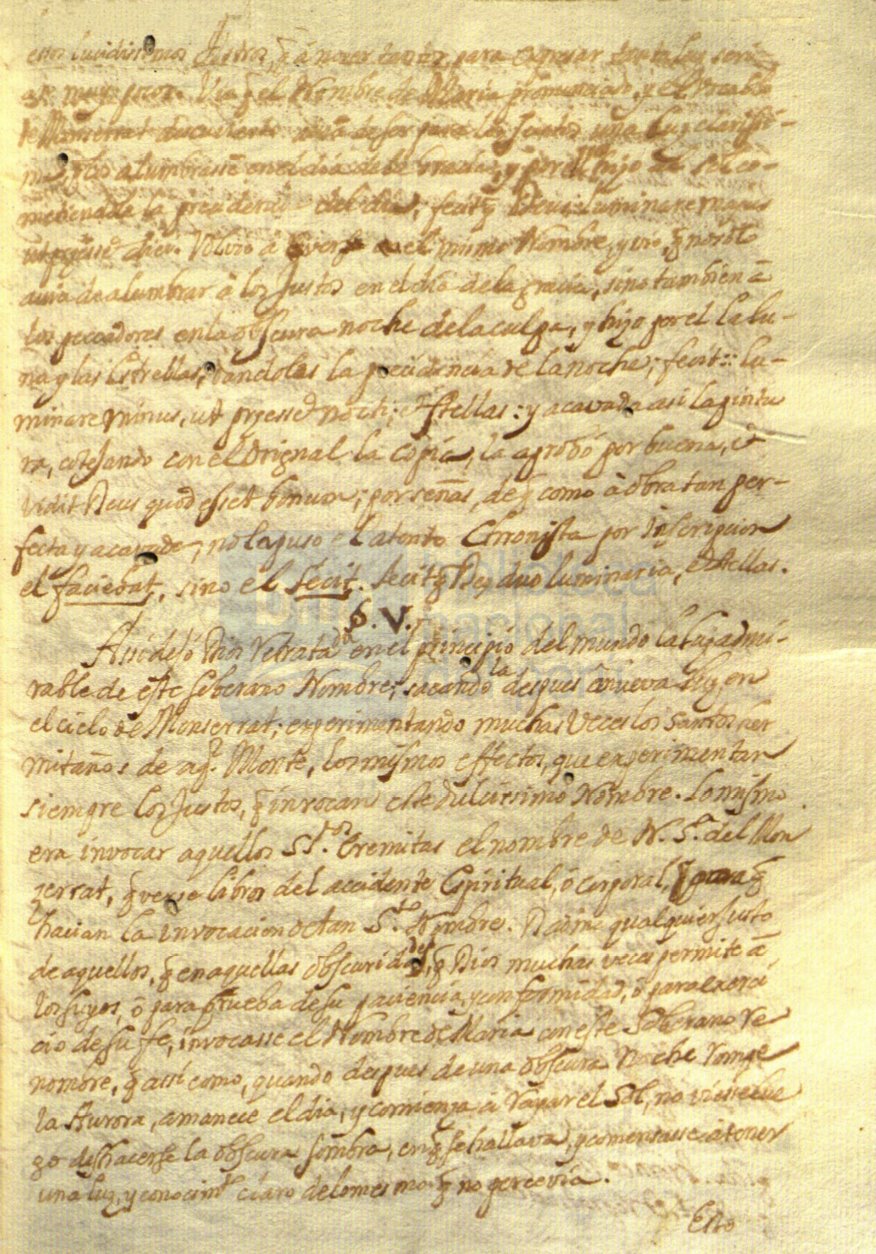 estos lucidissimos Astros, q̃ â no aver tantos, para expresar tanta luz seria
el Nombre de Maria pronunciado, y el vocablo
de Monserrat avia de ser para los justos una luz clarissi-
ma, q̃ los alumbrasse en el dia de la gracia, y por el hijo un sol co-
metiendole la precidencia del dia; fecitq̃ Deus luminare maius
ut præesset diei. Volvio â verse en el mismo Nombre, y vio, q̃ no solo
avia de alumbrar â los Justos en el dia de la gracia, sino tambien â
los peccadores en la obscura noche de la culpa, y hizo por el la lu-
na y las Estrellas, dandoles la precidencia de la noche; fecit:: lu-
minare minus, ut præesset nocti, et stellas: y acavada asi la pintu
ra, cotejando con el Orignal la copia, la aprobó por buena, et
vidit Deus quod esset bonum; por señas, de q̃ como â obra tan per-
fecta y acavada, no la puso el atento Chronista por Inscripcion
el faciebat, sino el fecit. fecitq̃ Deus duo luminaria, et stellas.
§. V.
Asi dejó Dios Retratada en el principio del mundo la luz admi-
rable de este soberano Nombre, sacandola despues â nueva luz, en
el cielo de Monserrat; experimentando muchas veces los santos her
mitaños de aql. Monte, los mismos effectos, que experimentan
siempre los Justos, q̃ invocan este dulcissimo Nombre. Lo mismo
era invocar aquellos Stos. Eremitas el nombre de N. Sa. del Mon
zerrat, q̃ verse libres del accidente Espiritual, ô corporal, para q̃
hacian la invocacion de tan Sto. Nombre. qualquier justo
de aquellos, q̃ en aquellas obscuridades, q̃ Dios muchas veces permite â
los suyos, ô para prueba de su paciencia, y conformidad, ô para exerci
cio de su fe, invocasse el Nombre de Maria con este Soberano Re
nombre, q̃ assi como, quando despues de una obscura Noche rompe
la Aurora, amanece el dia, y comienza â rayar el Sol, no viesse lue
go deshacerse la obscura sombra, en q̃ se hallava, y comensasse â tener
una luz, y conocimto. claro de lo mesmo q̃ no percevia.
Esto